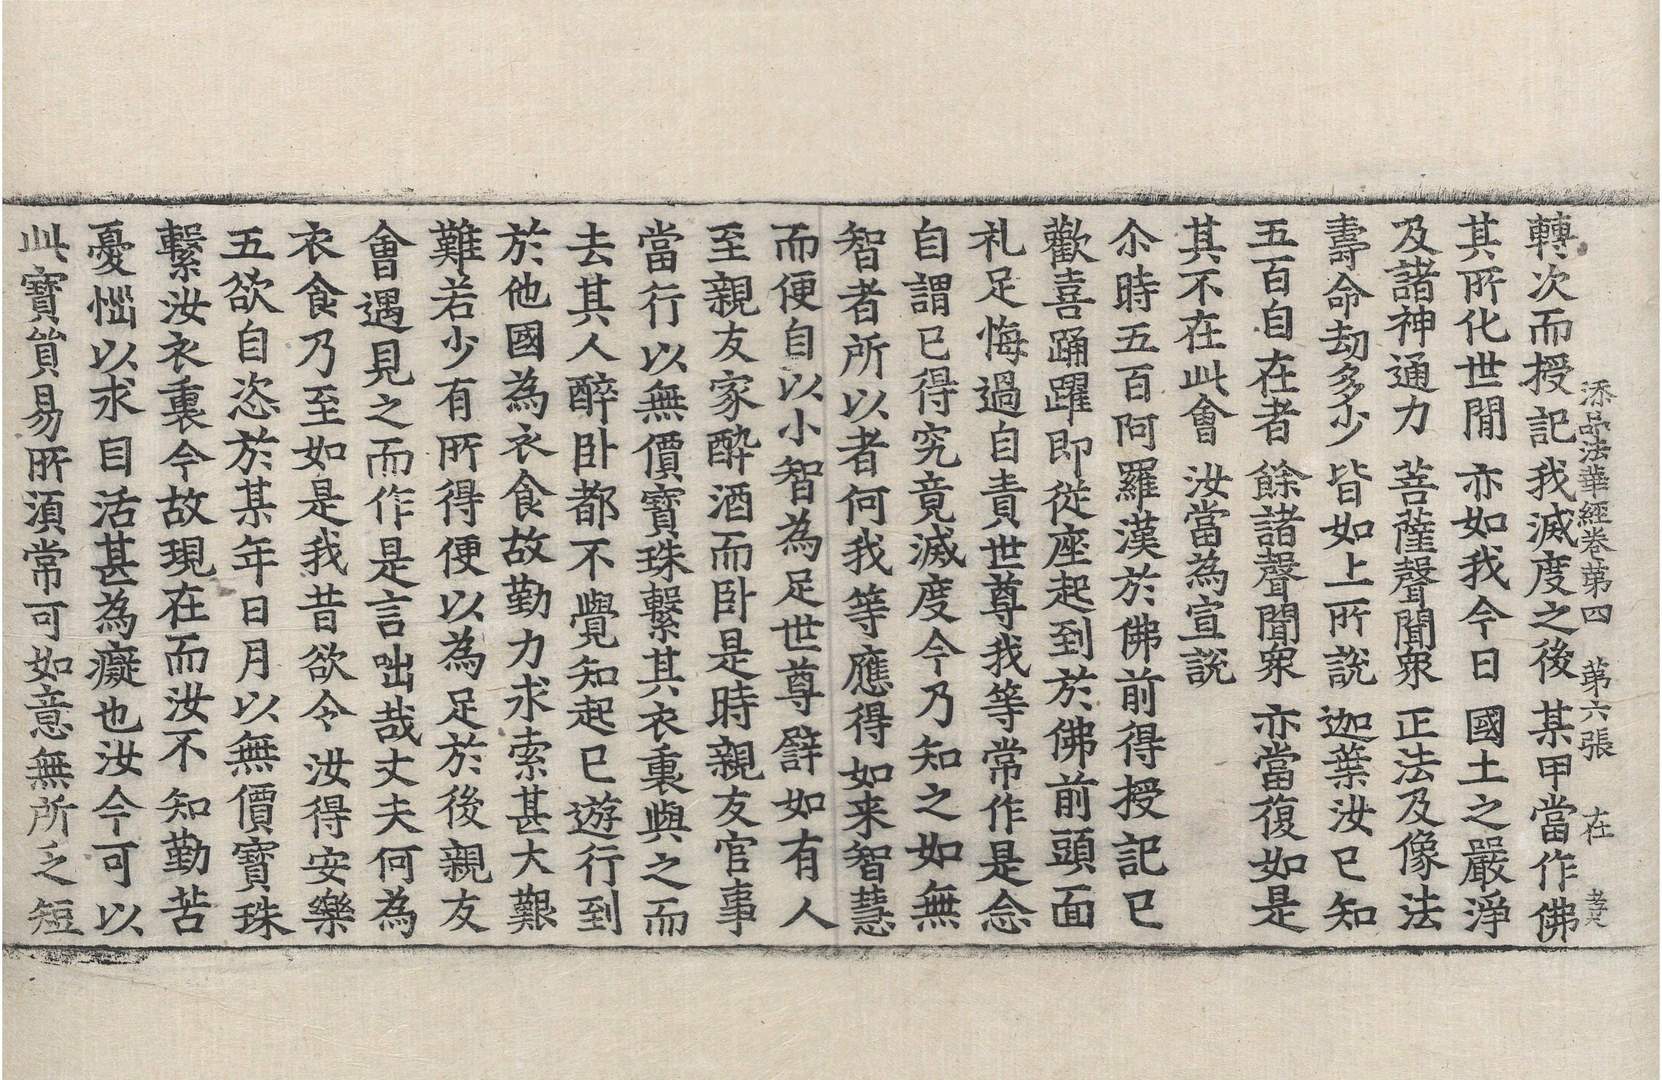 添品法華經卷第四　第六張　在
轉次而授記　我滅度之後　某甲當作佛
其所化世間　亦如我今日　國土之嚴淨
及諸神通力　菩薩聲聞衆　正法及像法
壽命劫多少　皆如上所說　迦葉汝已知
五百自在者　餘諸聲聞衆　亦當復如是
其不在此會　汝當為宣說
尒時五百阿羅漢於佛前得授記已
歡喜踊躍即從座起到於佛前頭面
礼足悔過自責世尊我等常作是念
自謂已得究竟滅度今乃知之如無
智者所以者何我等應得如来智慧
而便自以小智為足世尊譬如有人
至親友家醉酒而卧是時親友官事
當行以無價寶珠繫其衣裏與之而
去其人醉卧都不覺知起已遊行到
於他國為衣食故勤力求索甚大艱
難若少有所得便以為足於後親友
會遇見之而作是言咄哉丈夫何為
衣食乃至如是我昔欲令汝得安樂
五欲自恣於某年日月以無價寶珠
繫汝衣裏今故現在而汝不知勤苦
憂惱以求自活甚為癡也汝今可以
此寶貿易所須常可如意無所乏短